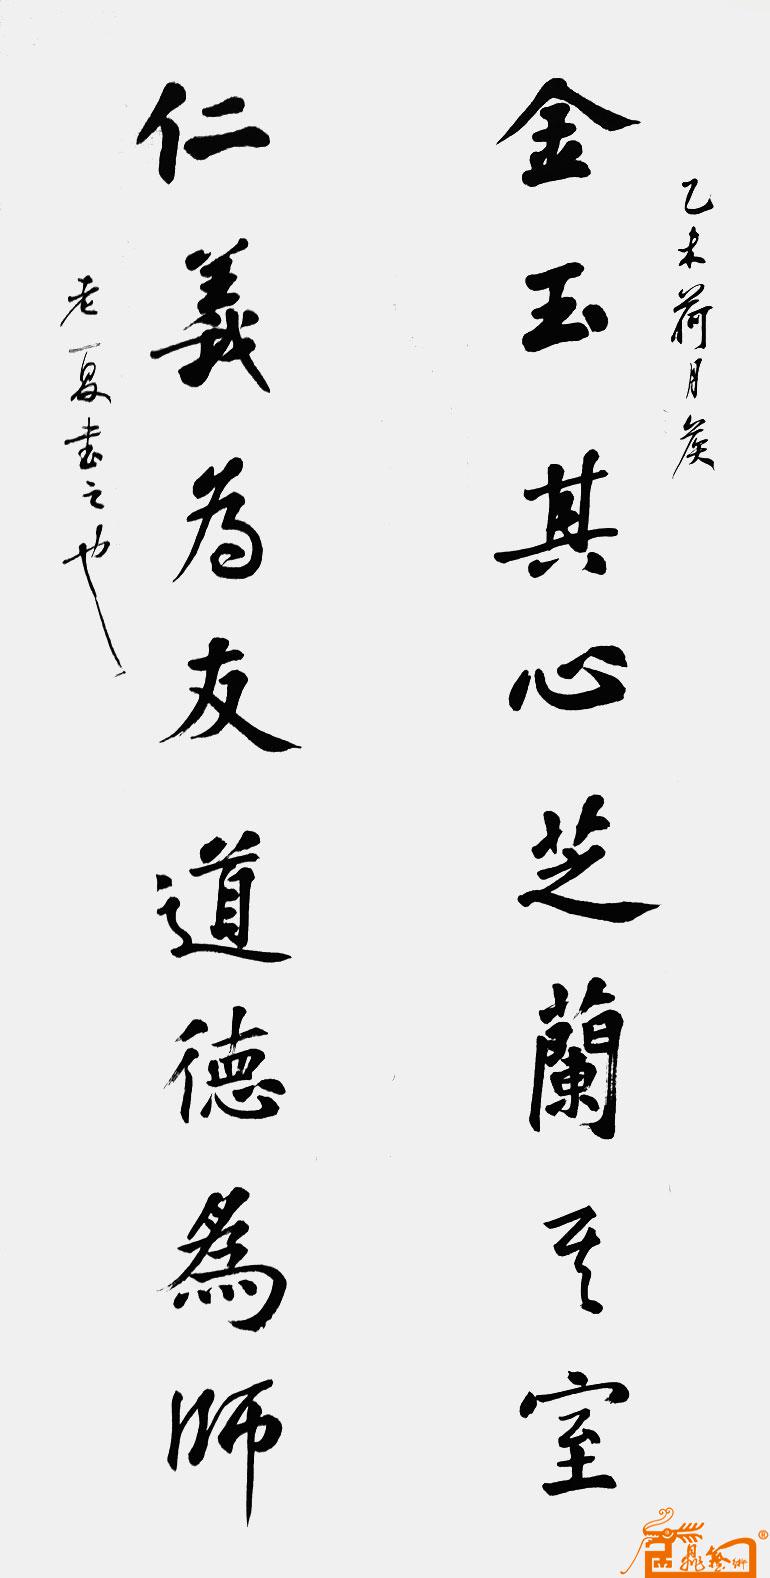 乙未荷月癸
金玉其心芝蘭其室
仁義為友道德為師
老夏書之也